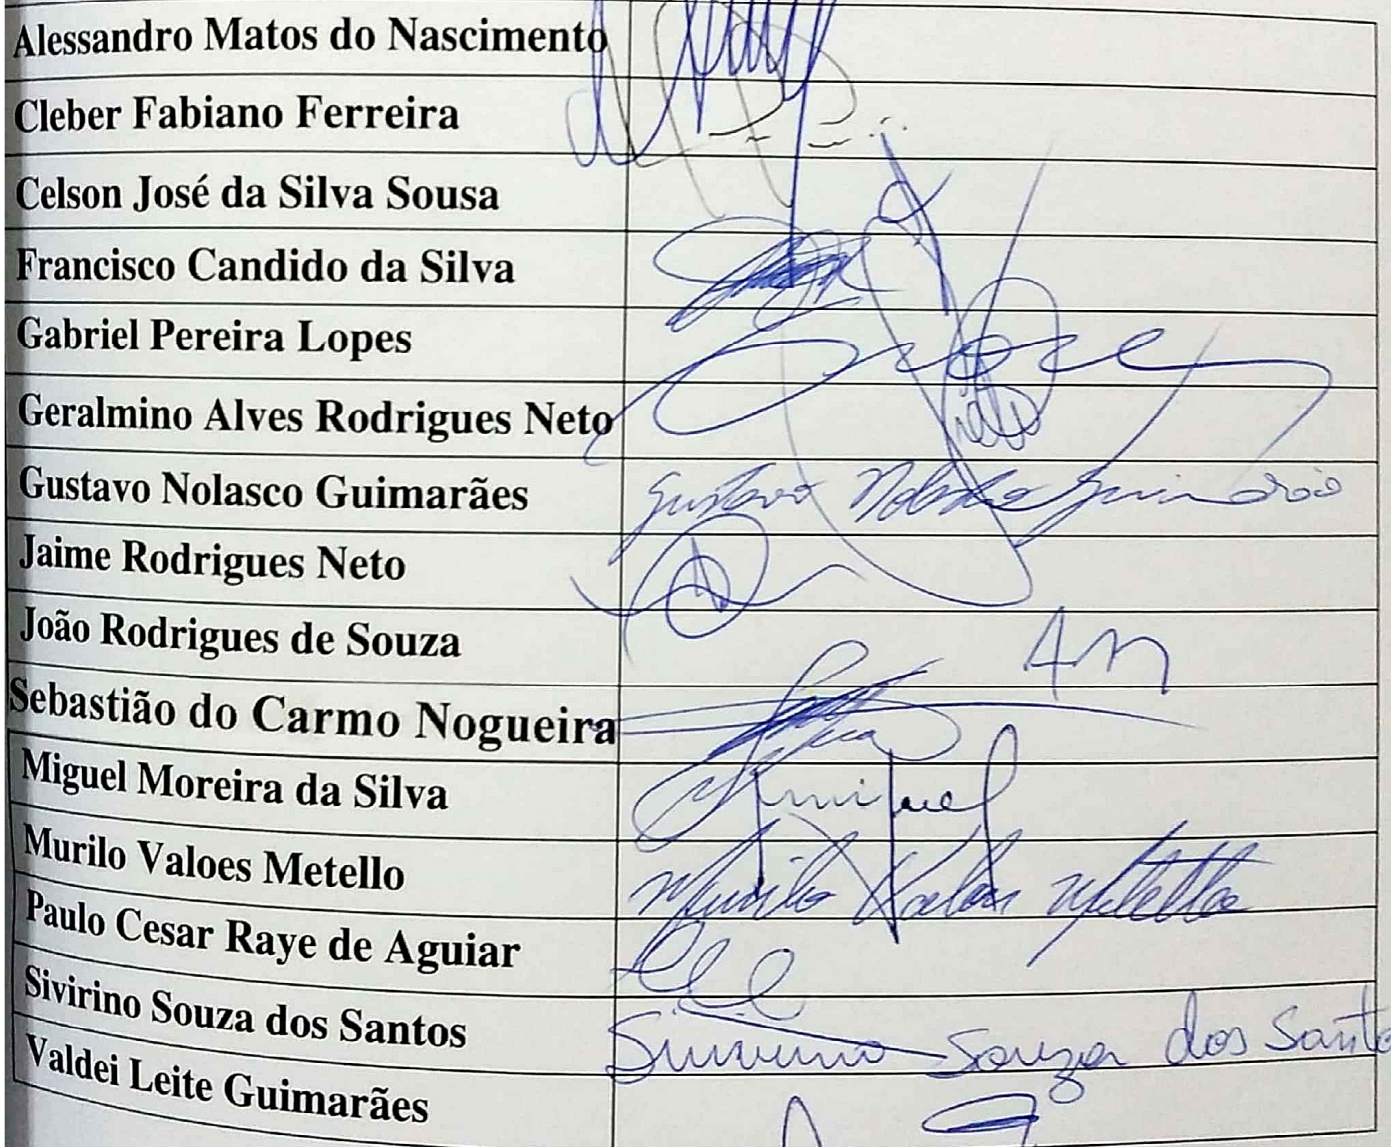 Alessandro Matos do Nascimento
Cleber Fabiano Ferreira
Celson José da Silva Sousa
Francisco Candido da Silva
Gabriel Pereira Lopes
Geralmino Alves Rodrigues Neto
Gustavo Nolasco Guimarães Gustavo Nolasco Guimarães
Jaime Rodrigues Neto
João Rodrigues de Souza
Sebastião do Carmo Nogueira
Miguel Moreira da Silva Miguel
Murilo Valoes Metello Murilo Valoes Metello
Paulo Cesar Raye de Aguiar
Sivirino Souza dos Santos Sivirino Souza dos Santo
Valdei Leite Guimarães